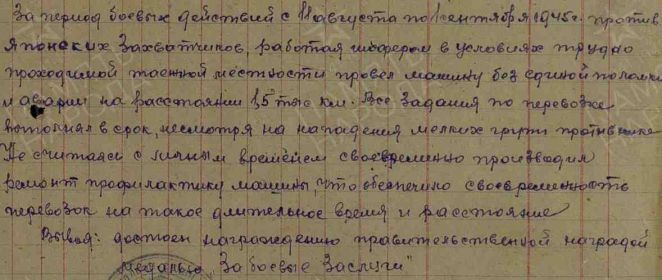 За период боевых действий с 11 августа по 1 сентября 1945 г. против
Японских захватчиков, работая шофером в условиях трудно
проходимой таежной местности провел машину без единой поломки
и аварии на расстоянии 1,5 тыс км. Все задания по перевозке
выполнял в срок, несмотря на нападения мелких групп противника
Не считаясь с личным временем своевременно производил
ремонт профилактику машины, что обеспечило своевременность
перевозок на такое длительное время и расстояние
Вывод: достоен награждению правительственной наградой
медалью "За боевые заслуги"